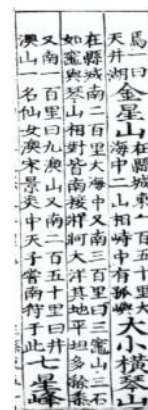 馬一曰金星山在縣城東一百五十里大
天井湖海中二山相峙中有孤嶼大小橫琴山
在縣城南二百里大海中又南三百里曰三竈山三石
如竈與琴山相對皆南接牂牁大洋其地平坦多
又南一百里曰九澳山又南二百五十里曰井
澳山一名仙女澳宋景炎中天子嘗南狩于此七星峰